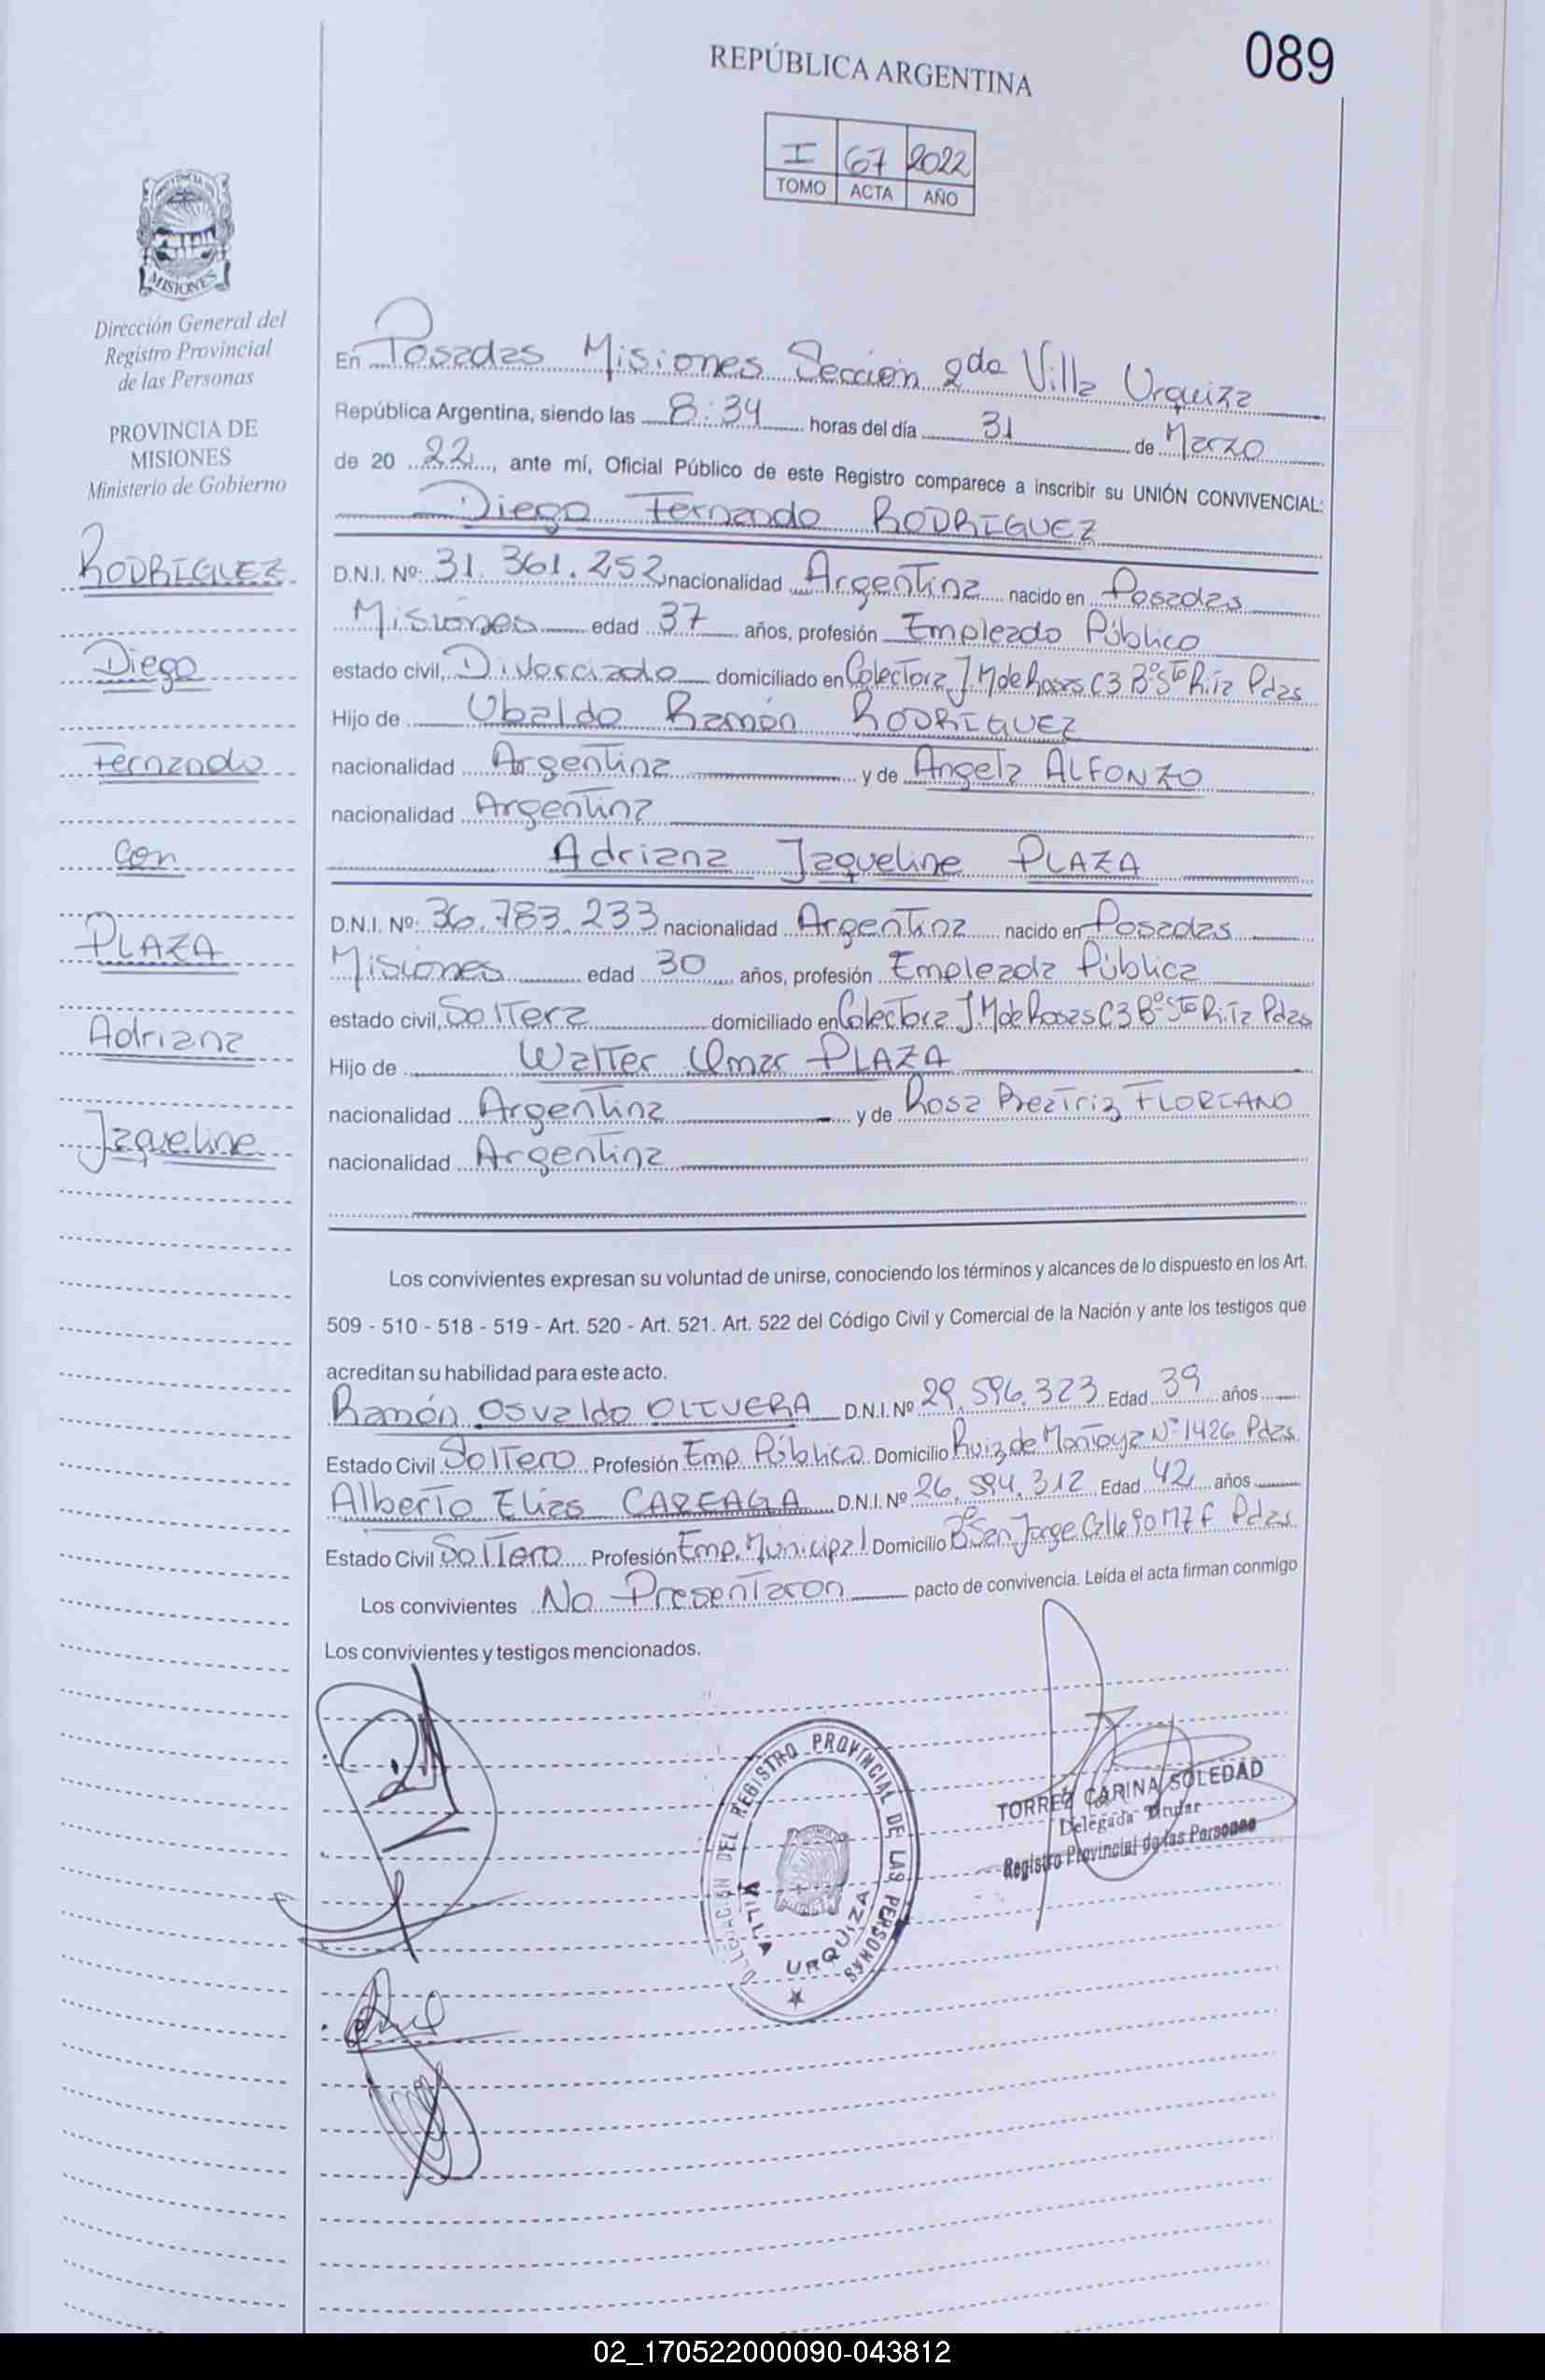 089
REPÚBLICA ARGENTINA
I 67 2022
TOMO ACTA AÑO
MISIONES
Dirección General del
Registro Provincial
de las Personas
PROVINCIA DE
MISIONES
Ministerio de Gobierno
RODRIGUEZ
Diego
Fernando
Con
PLAZA
Adriana
Jaqueline
En Posadas Misiones Sección 2da Villa Urquiza
República Argentina, siendo las 8:34 horas del día 31 de Marzo
de 20 22, ante mí, Oficial Público de este Registro comparece a inscribir su UNIÓN CONVIVENCIAL:
Diego Fernando RODRIGUEZ
D.N.I. Nº: 31.361.252 nacionalidad Argentina nacido en Posadas
Misiones edad 37 años, profesión Empleado Público
estado civil, Divorciado domiciliado en Colectora J.M de Rosas C3 Bº Sta Rita Pdas
Hijo de Ubaldo Ramón RODRIGUEZ
nacionalidad Argentina y de Angela ALFONZO
nacionalidad Argentina
Adriana Jaqueline PLAZA
D.N.I. Nº: 36.783.233 nacionalidad Argentina nacido en Posadas
Misiones edad 30 años, profesión Empleada Pública
estado civil, Soltera domiciliado en Colectora J M de Rosas C3 Bº Sta Rita Pdas
Hijo de Walter Omar PLAZA
nacionalidad Argentina y de Rosa Beatriz FLORIANO
nacionalidad Argentina
Los convivientes expresan su voluntad de unirse, conociendo los términos y alcances de lo dispuesto en los Art.
509 - 510 - 518 - 519 - Art. 520 - Art. 521. Art. 522 del Código Civil y Comercial de la Nación y ante los testigos que
acreditan su habilidad para este acto.
Ramón Osvaldo OLIVERA D.N.I. Nº 29.596.323 Edad 39 años
Estado Civil Soltero Profesión Emp. Público Domicilio Ruiz de Montoya Nº 1426 Pdas
Alberto Elias CAREAGA D.N.I. Nº 26.594.312 Edad 42 años
Estado Civil Soltero Profesión Emp. Municipal Domicilio Bº San Jorge Calle 90 M7 F Pdas
Los convivientes No Presentaron pacto de convivencia. Leída el acta firman conmigo
Los convivientes y testigos mencionados.
DELEGACION DEL REGISTRO PROVINCIAL DE LAS PERSONAS
VILLA URQUIZA
TORREZ CARINA SOLEDAD
Delegada Titular
Registro Provincial de las Personas
02_170522000090-043812